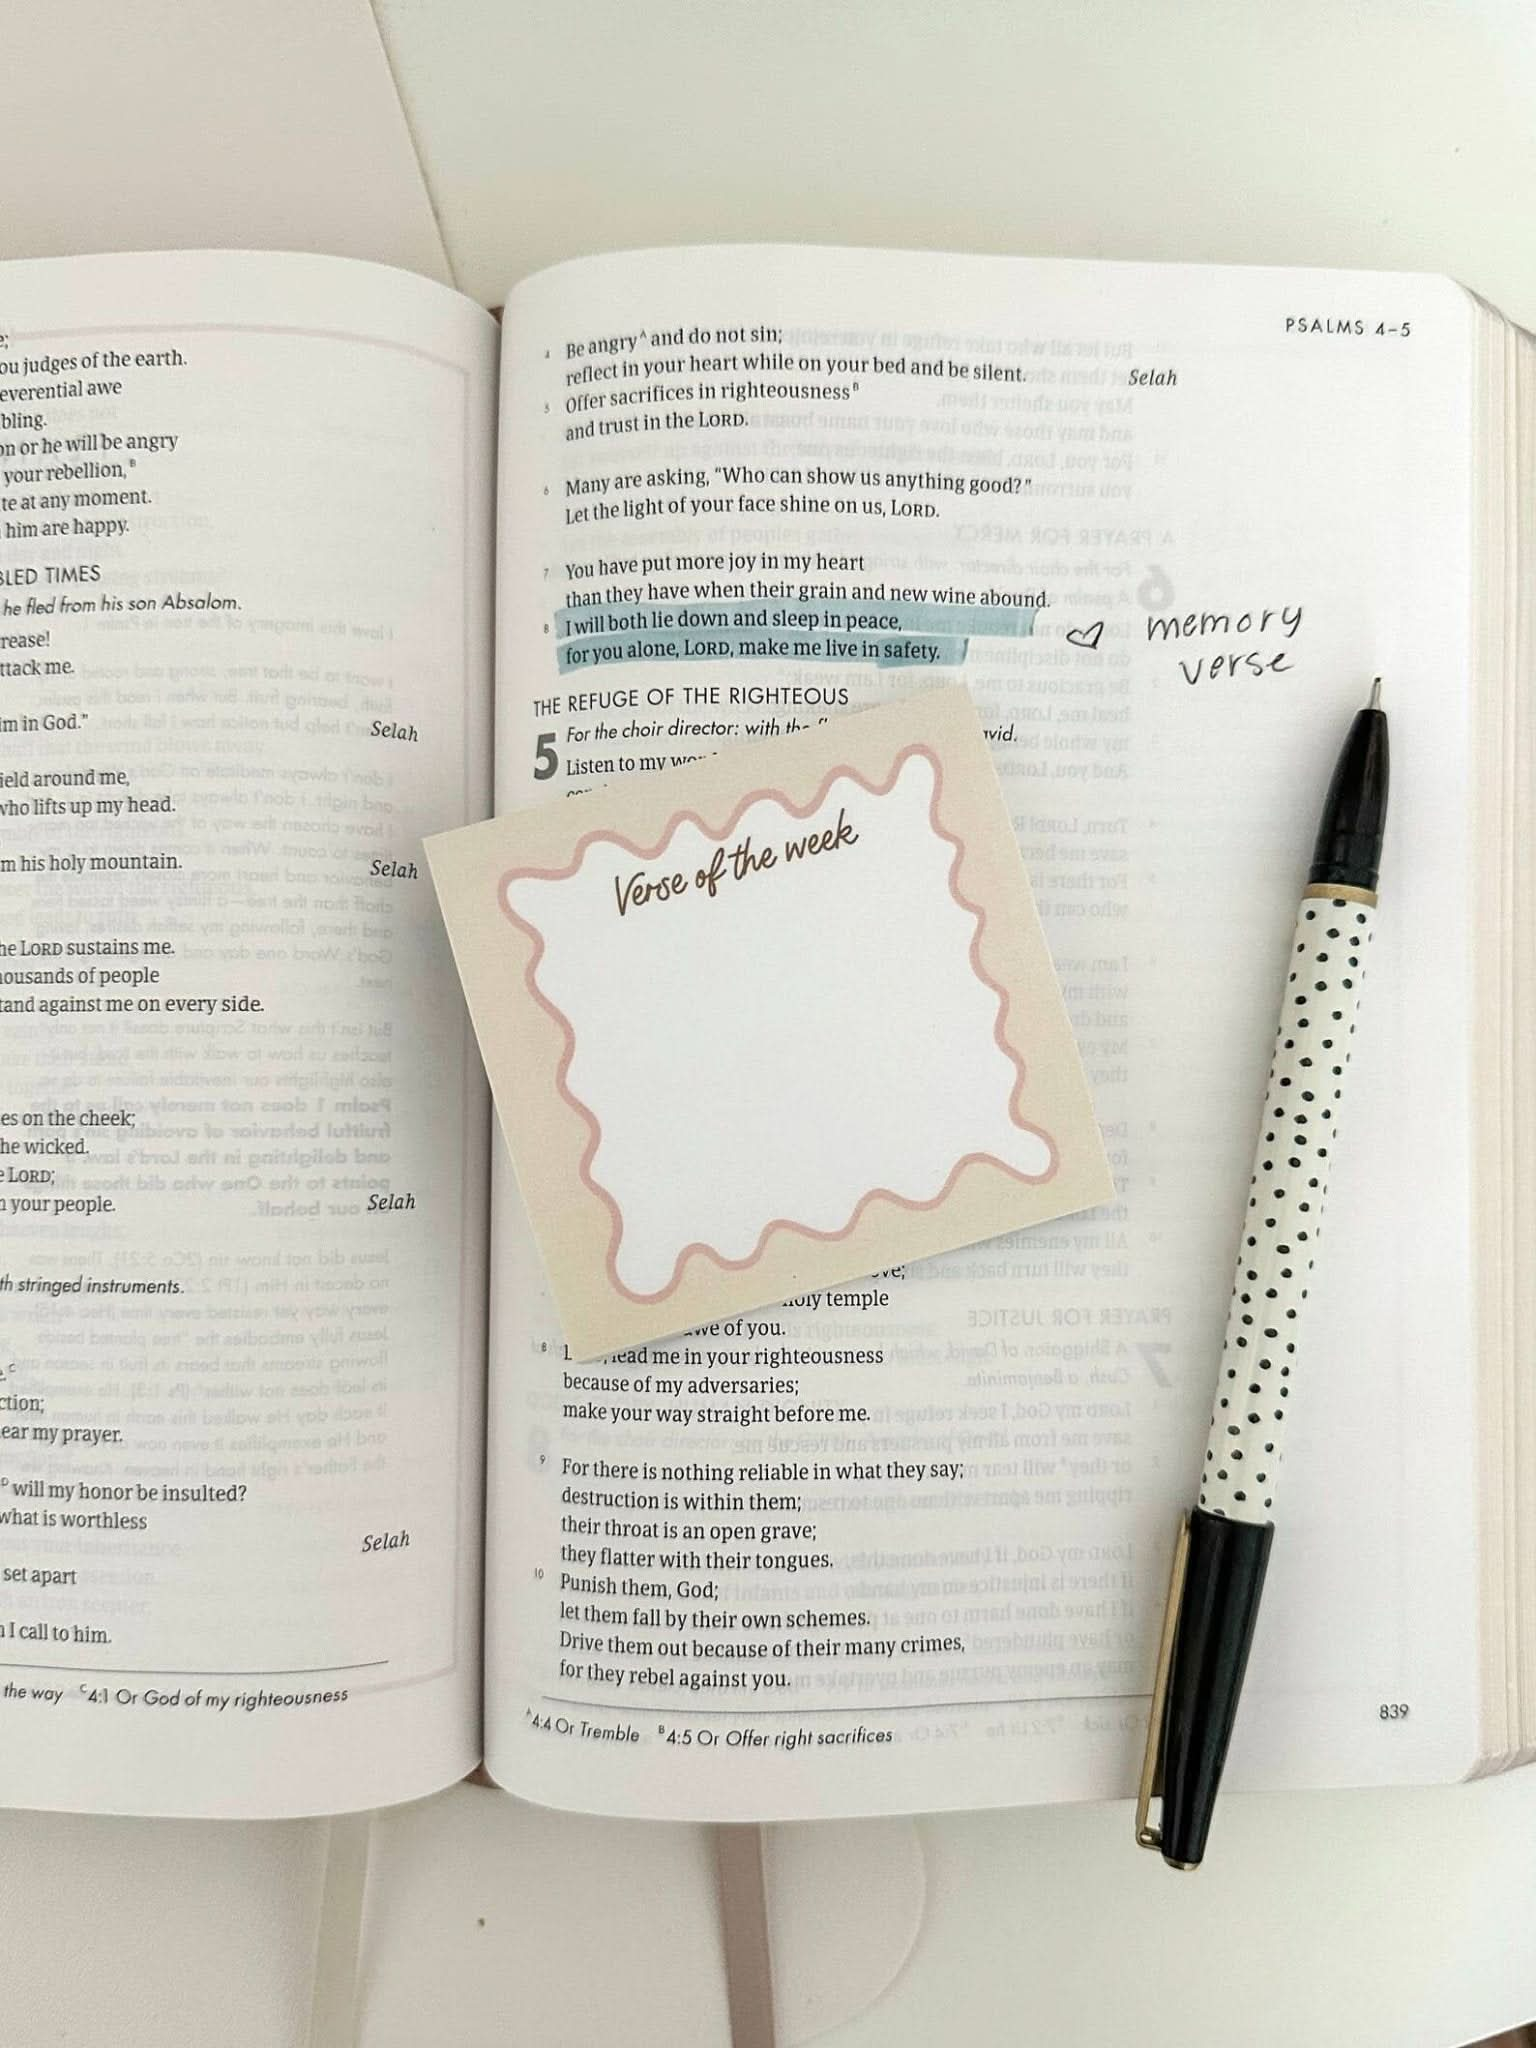 e;
ou judges of the earth.
everential awe
bling.
on or he will be angry
your rebellion,ᴮ
te at any moment.
him are happy.
BLED TIMES
he fled from his son Absalom.
rease!
ttack me.
im in God."
Selah
ield around me,
who lifts up my head.
m his holy mountain.
Selah
he LORD sustains me.
housands of people
tand against me on every side.
es on the cheek;
he wicked.
e LORD;
n your people.
Selah
th stringed instruments.
ction;
ear my prayer.
ᴰ will my honor be insulted?
what is worthless
Selah
set apart
n I call to him.
the way ᶜ4:1 Or God of my righteousness
PSALMS 4–5
4 Be angryᴬ and do not sin;
reflect in your heart while on your bed and be silent. Selah
5 Offer sacrifices in righteousnessᴮ
and trust in the LORD.
6 Many are asking, "Who can show us anything good?"
Let the light of your face shine on us, LORD.
7 You have put more joy in my heart
than they have when their grain and new wine abound.
8 I will both lie down and sleep in peace,
for you alone, LORD, make me live in safety.
memory
verse
THE REFUGE OF THE RIGHTEOUS
5 For the choir director: with the avid.
Listen to my
Verse of the week
ove;
holy temple
awe of you.
8 lead me in your righteousness
because of my adversaries;
make your way straight before me.
9 For there is nothing reliable in what they say;
destruction is within them;
their throat is an open grave;
they flatter with their tongues.
10 Punish them, God;
let them fall by their own schemes.
Drive them out because of their many crimes,
for they rebel against you.
ᴬ4:4 Or Tremble ᴮ4:5 Or Offer right sacrifices
839